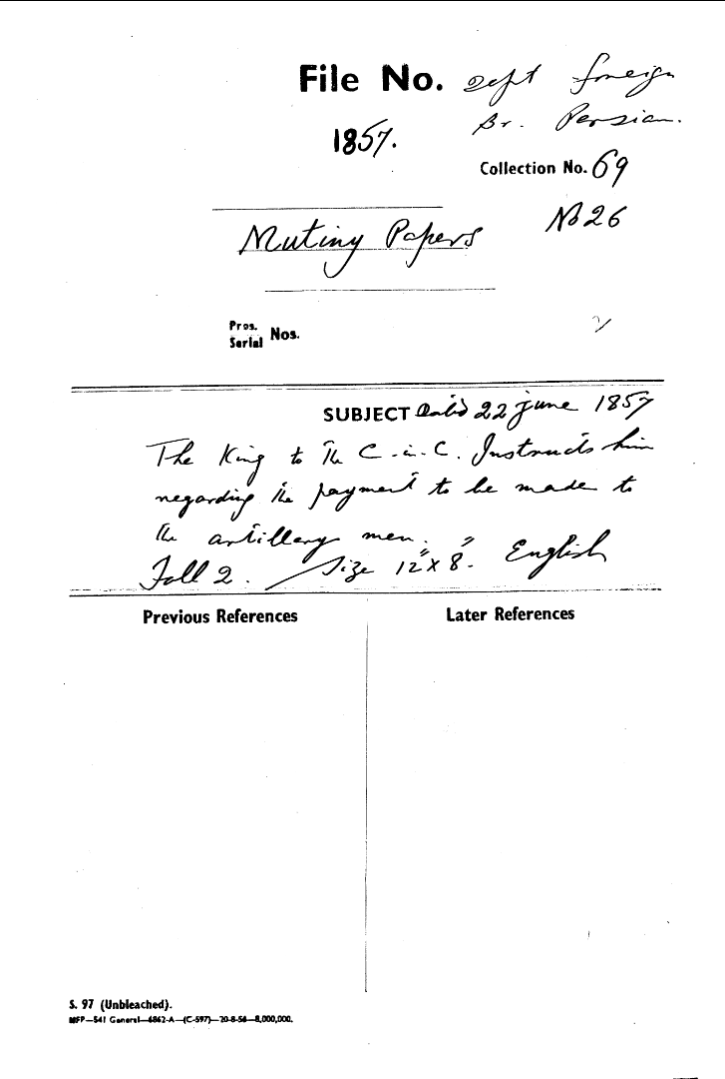 File No. Dept Foreign
Br. Persian.
1857.
Collection No. 69
No 26
Mutiny Papers
Pros.
Serial Nos.
SUBJECT Dated 22 June 1857
The King to The C-in-C. Instructs him
regarding the payment to be made to
the artillery men.
Foll 2. Size 12" x 8". English
Previous References
Later References
S. 97 (Unbleached).
MFP—541 General—6862-A—(C-597)—20-8-56—8,000,000.